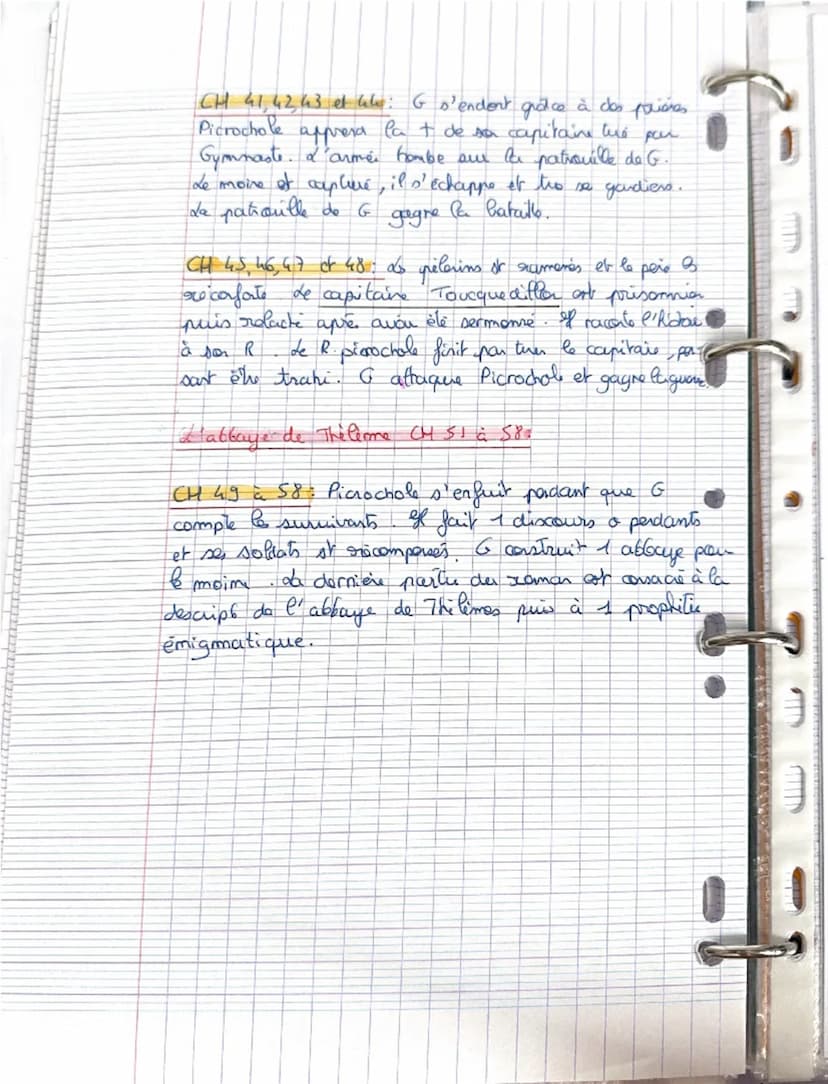 CH 41, 42, 43 et 44 : G s'endort grâce à des prières
Picrochole apprend la † de son capitaine tué par
Gymnaste. L'armée tombe sur la patrouille de G.
Le moine est capturé, il s'échappe et tue se gardiens.
La patrouille de G gagre la bataille.
CH 45, 46, 47 et 48 : Les pélerins st ramenés et le père
réconforte Le capitaine Toucquedillon est prisonnier
puis relaché après avoir été sermonné. Il raconte
à son R. Le R. picrochole finit par tuer le capitaine,
sant être trahi. G attaque Picrochole et gagne la guerre.
L'abbaye de Thélème CH 51 à 58 :
CH 49 à 58 : Picrochole s'enfuit pendant que G
compte les survivants. Il fait 1 discours o perdants
et ses soldats st récompensés. G construit 1 abbaye pour
le moine. La dernière partie du roman est consacré à la
descript de l'abbaye de Thélèmes puis à 1 prophétie
énigmatique.